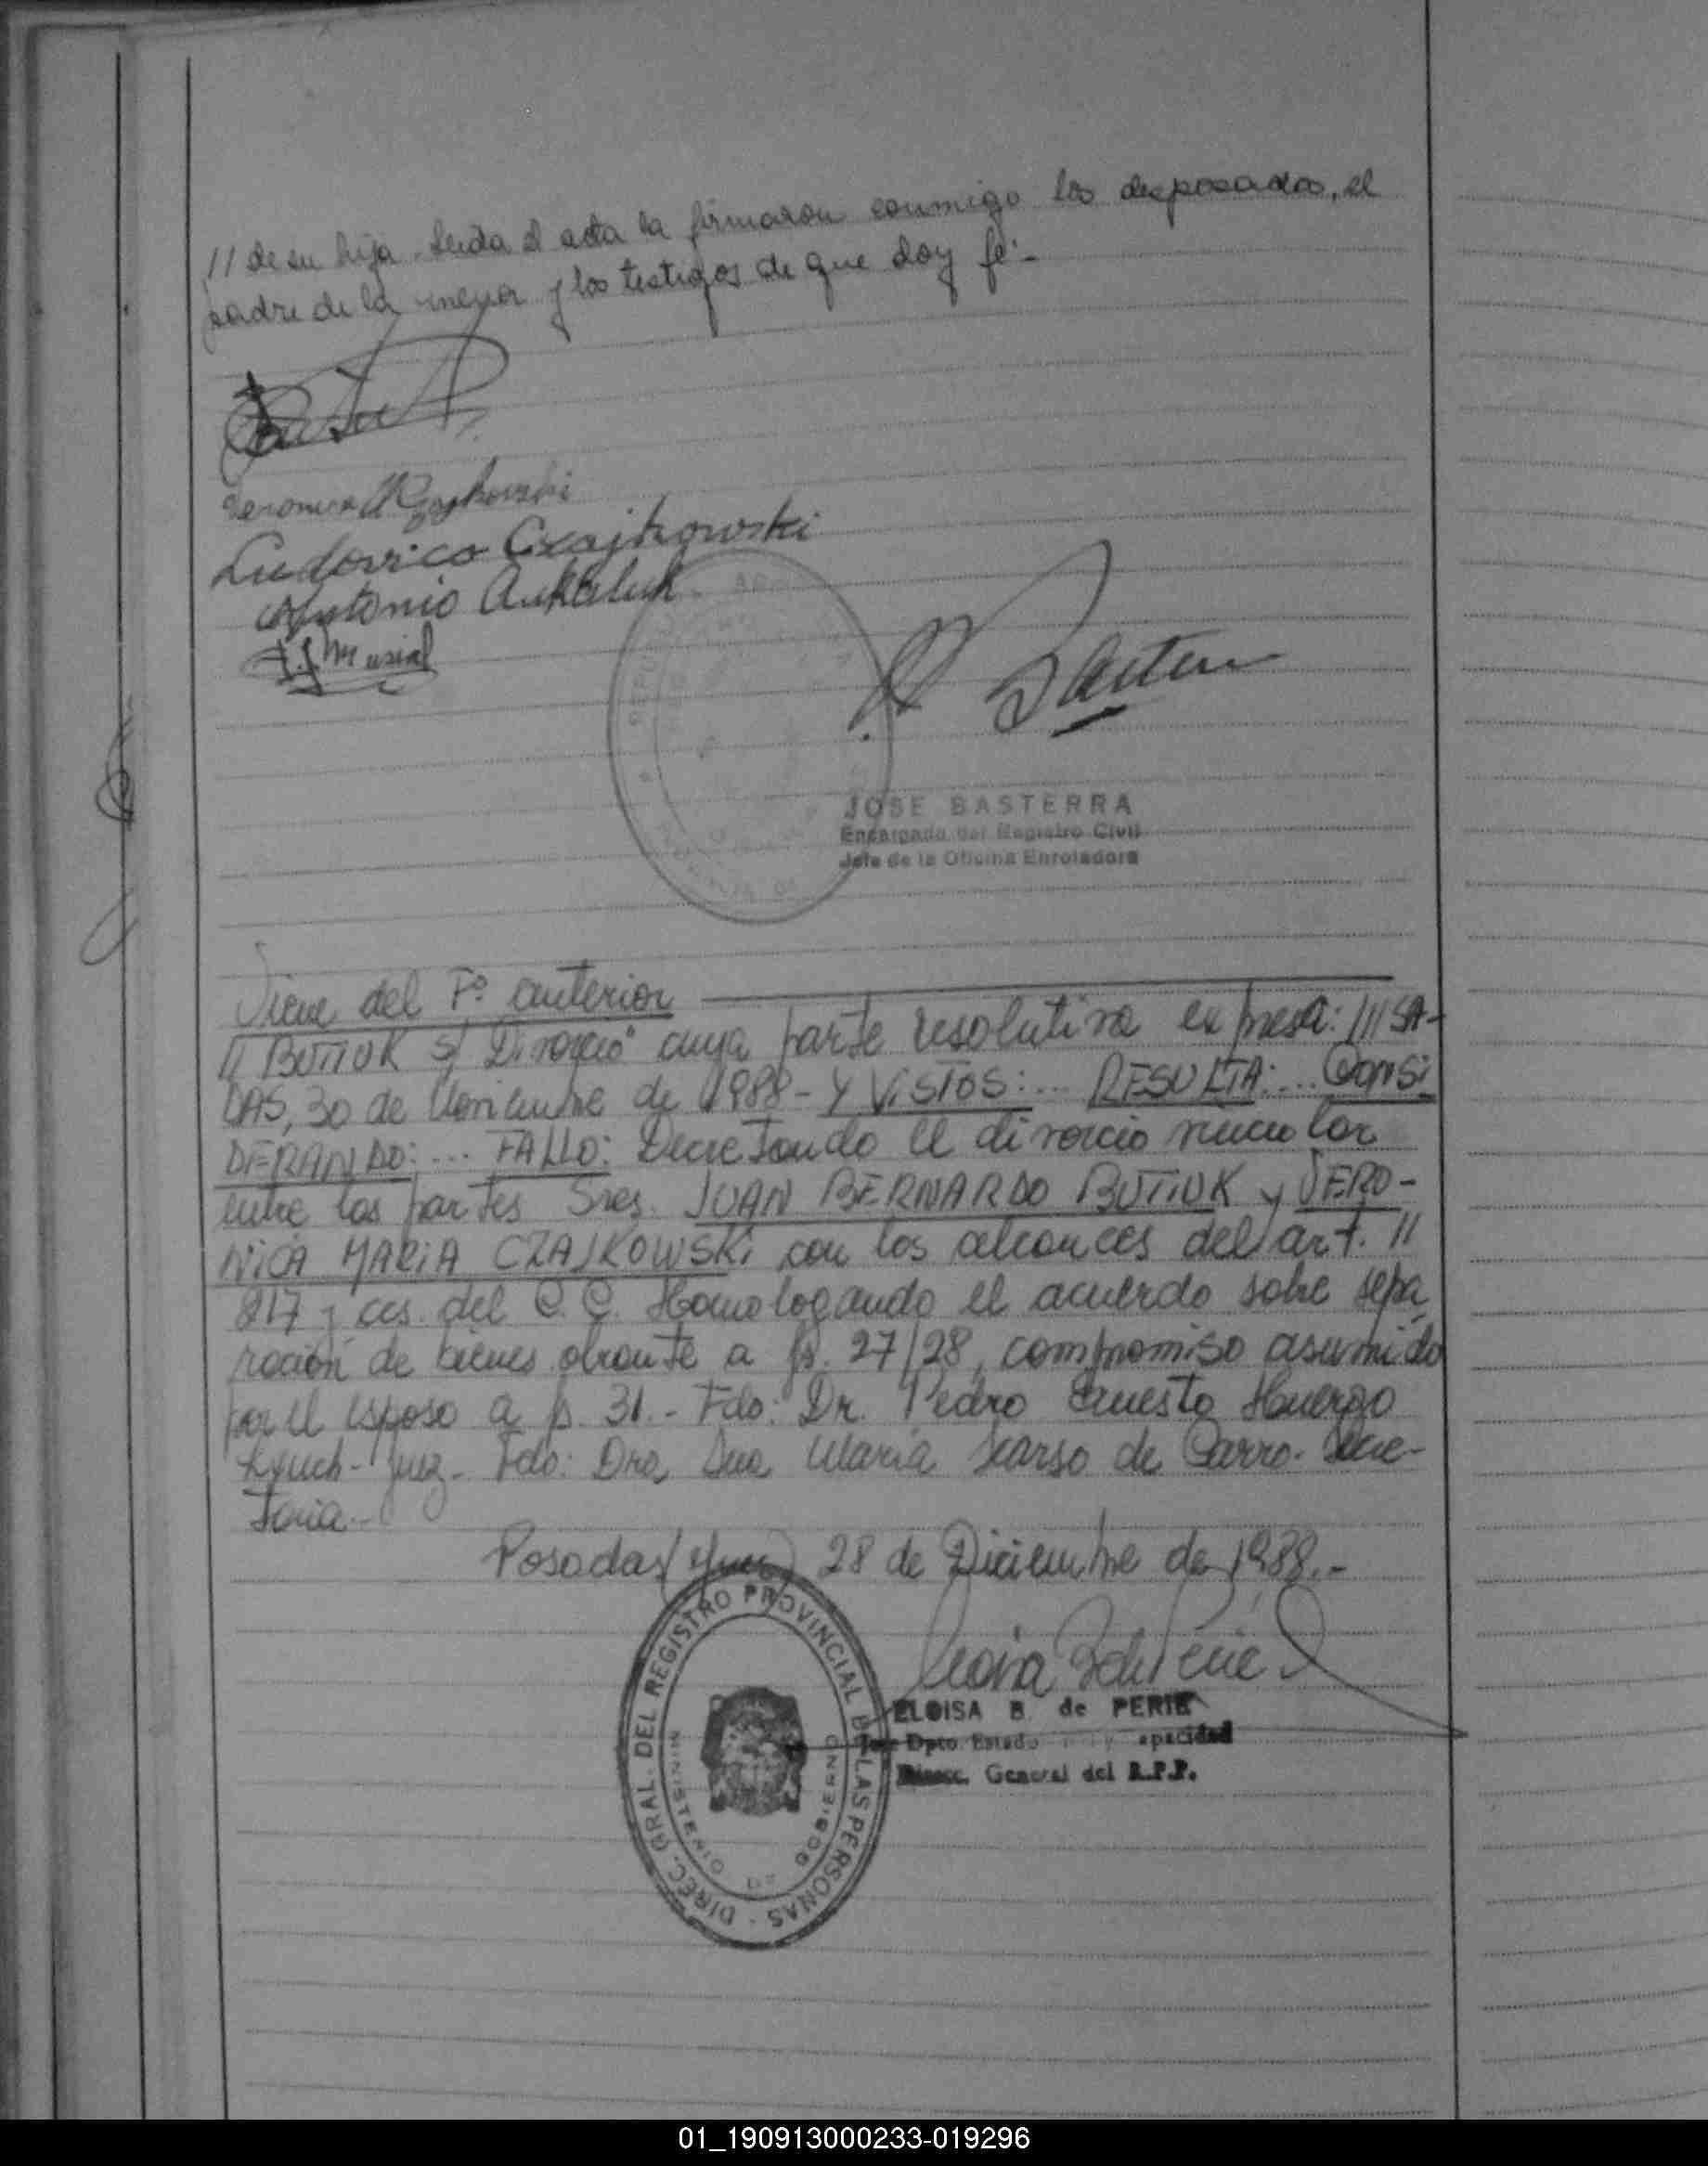 // de su hija. Leida el acta la firmaron conmigo los desposados, el
padre de la menor y los testigos de que doy fé.-
Veronica M Czajkowski
Ludovico Czajkowski
Antonio
Musial
JOSE BASTERRA
Encargado del Registro Civil
Jefe de la Oficina Enroladora
Viene del Fº anterior
// BUTIUK S/ Divorcio" cuya parte resolutiva expresa: ///SA-
DAS, 30 de Noviembre de 1988- Y VISTOS:... RESULTA:... CONSI
DERANDO:... FALLO: Decretando el divorcio vincular
entre las partes Sres. JUAN BERNARDO BUTIUK y VERO-
NICA MARIA CZAJKOWSKI con los alcances del art. //
217 y ccs. del C.C. Homologando el acuerdo sobre sepa
ración de bienes obrante a fs. 27/28, compromiso asumido
por el esposo a fs. 31.- Fdo: Dr. Pedro Ernesto Huergo
Lynch- Juez- Fdo: Dra Ana Maria de Carro- Secre-
taria.-
Posadas 28 de Diciembre de 1988.-
ELOISA B. de PERIE
Dpto. Estado apacidad
Direcc. General del R.P.P.
DIREC. GRAL. DEL REGISTRO PROVINCIAL DE LAS PERSONAS
MINISTERIO DE GOBIERNO
01_190913000233-019296